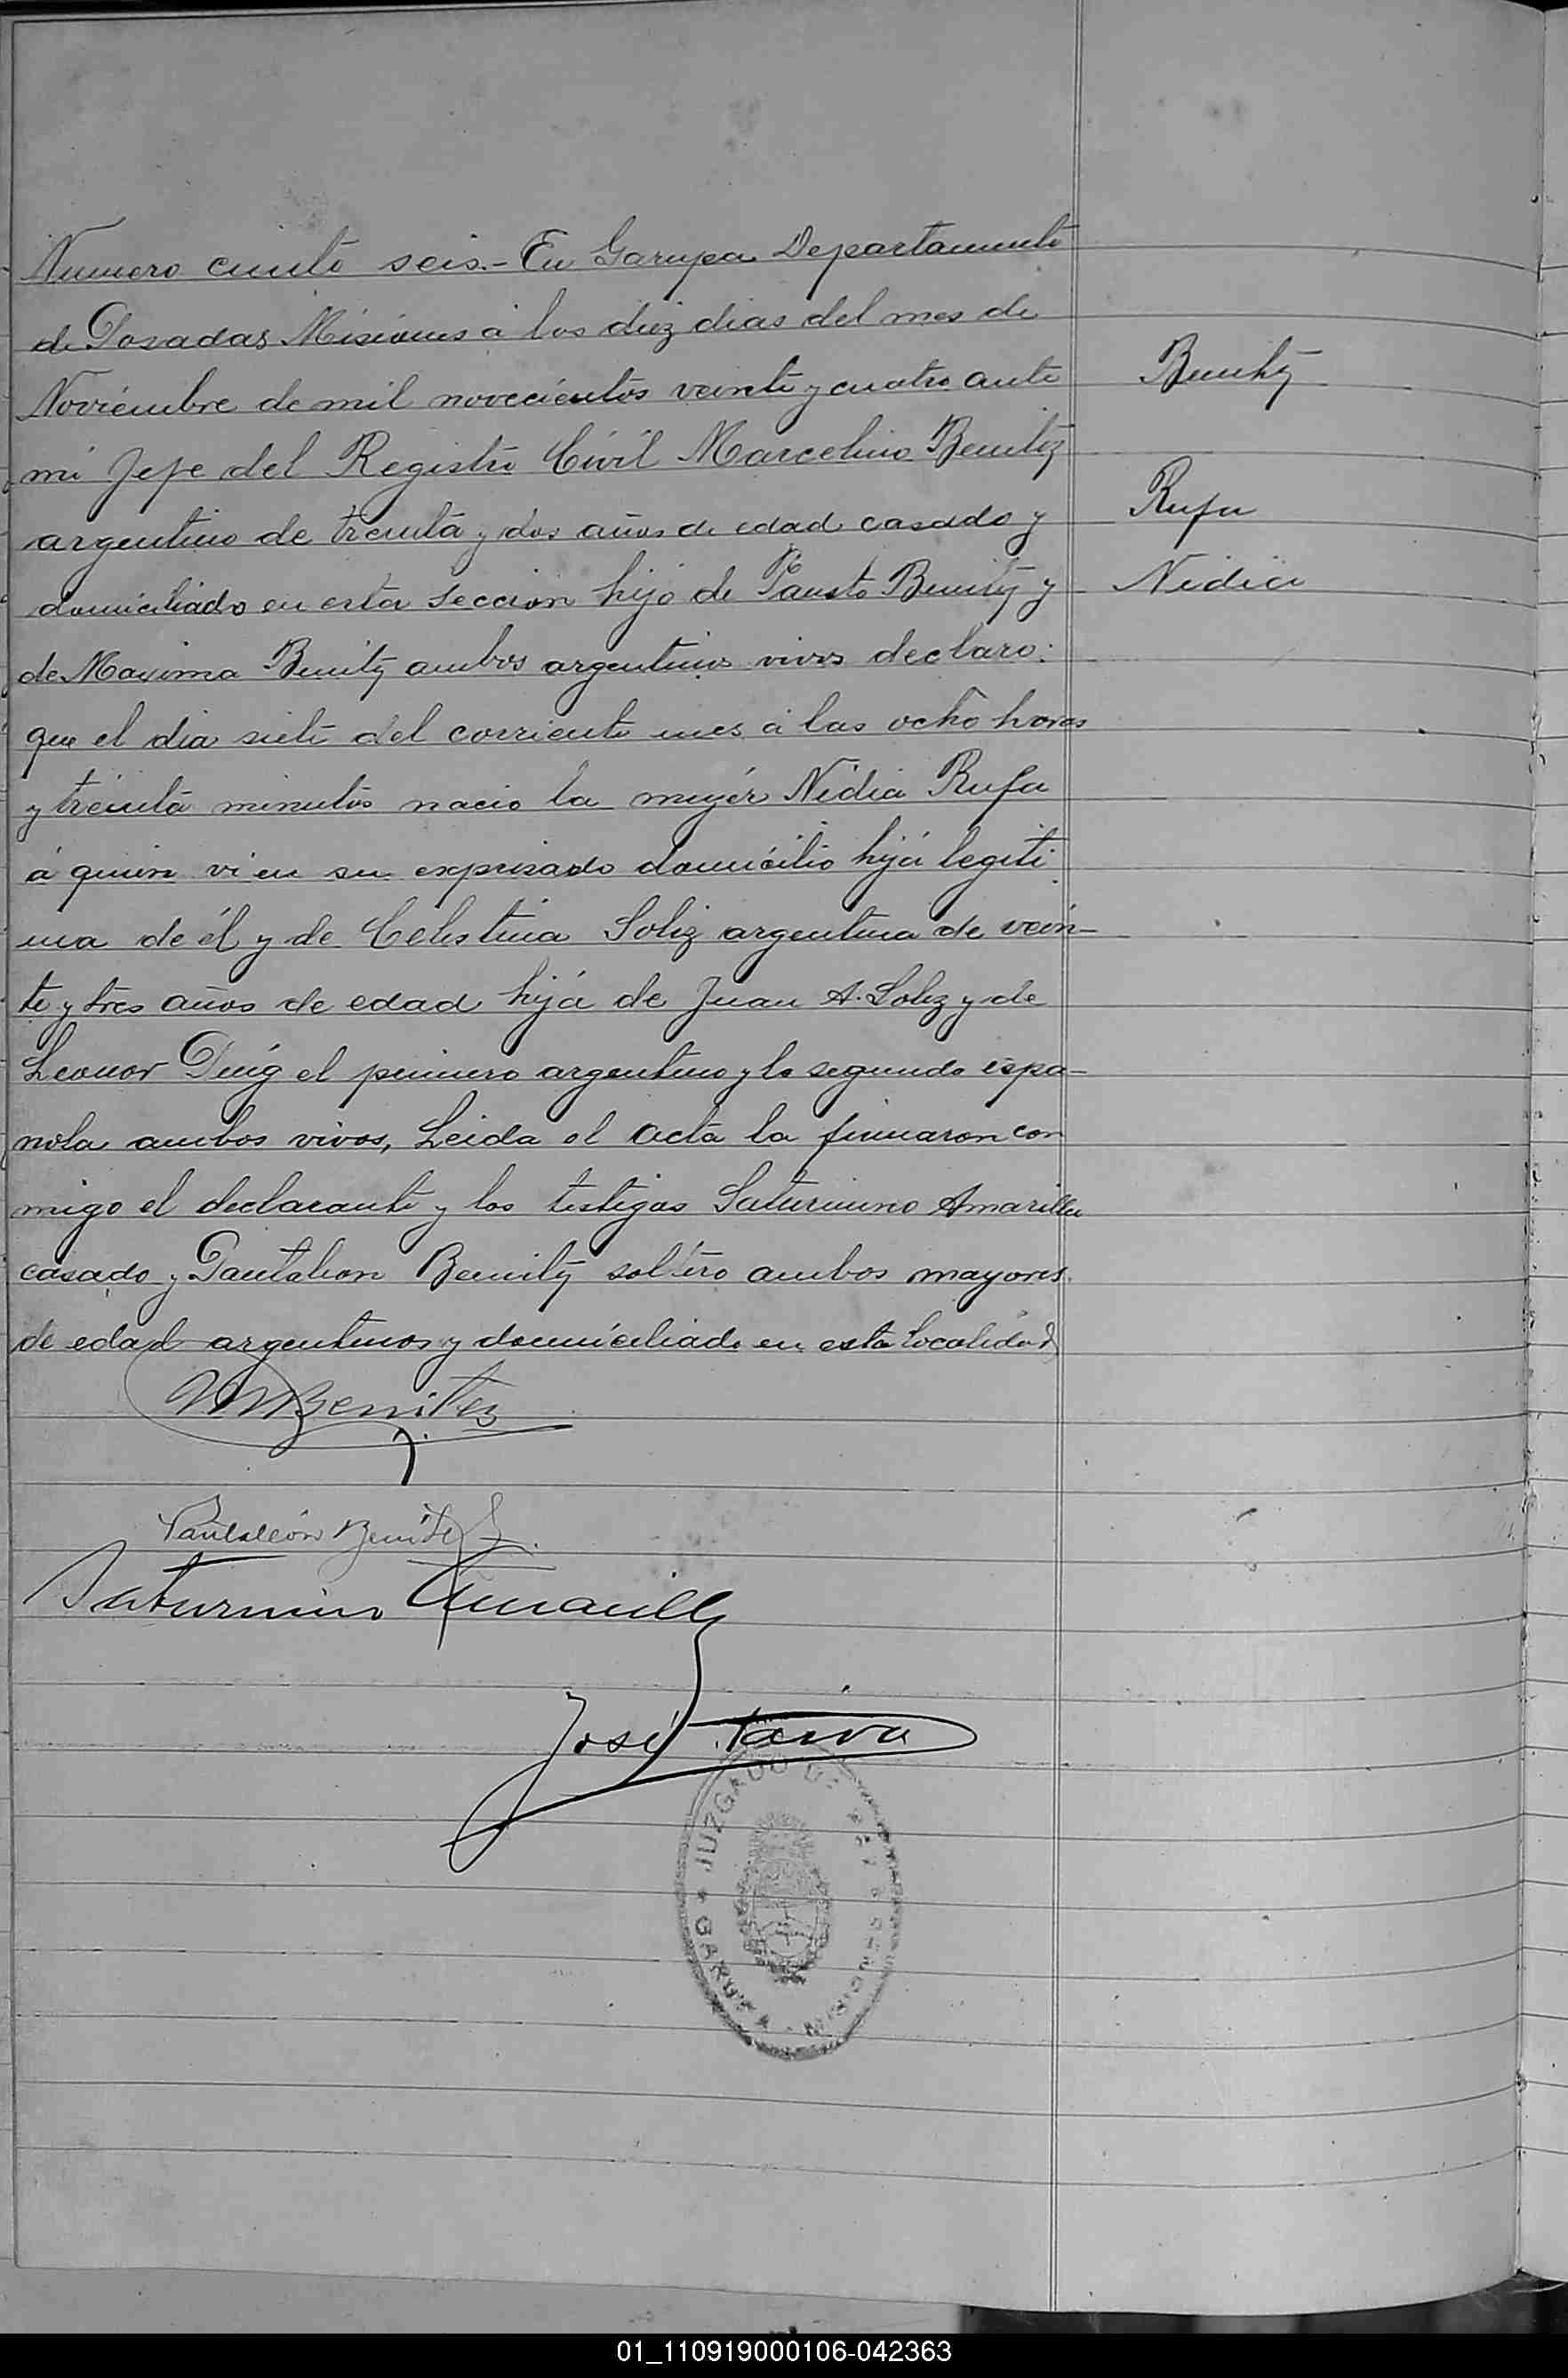 Numero ciento seis.- En Garupa Departamento
de Posadas Misiones á los diez dias del mes de
Noviembre de mil novecientos veinte y cuatro ante
Benitez
mi Jefe del Registro Civil Marcelino Benitez
argentino de treinta y dos años de edad casado y
Rufa
domiciliado en esta Sección hijo de Fausto Benitez y
Nidia
de Maxima Benitez ambos argentinos vivos declaro:
que el dia siete del corriente mes á las ocho horas
y treinta minutos nacio la mujér Nidia Rufa
á quien vi en su expresado domicilio hijá legiti
ma de él y de Celestina Soliz argentina de vein-
te y tres años de edad hijá de Juan A. Soliz y de
Leonor Puig el primero argentino y la segunda espa-
nola ambos vivos, Leida el acta la firmaron con
migo el declarante y los testigos Saturnino Amarilla
casado y Pantaleon Benitez soltero ambos mayores
de edad argentinos y domiciliado en esta localidad
M Benitez
Pantaleón Benitez
Saturnino Amarilla
José Paiva
JUZGADO DE PAZ
GARUPA - MISIONES
01_110919000106-042363